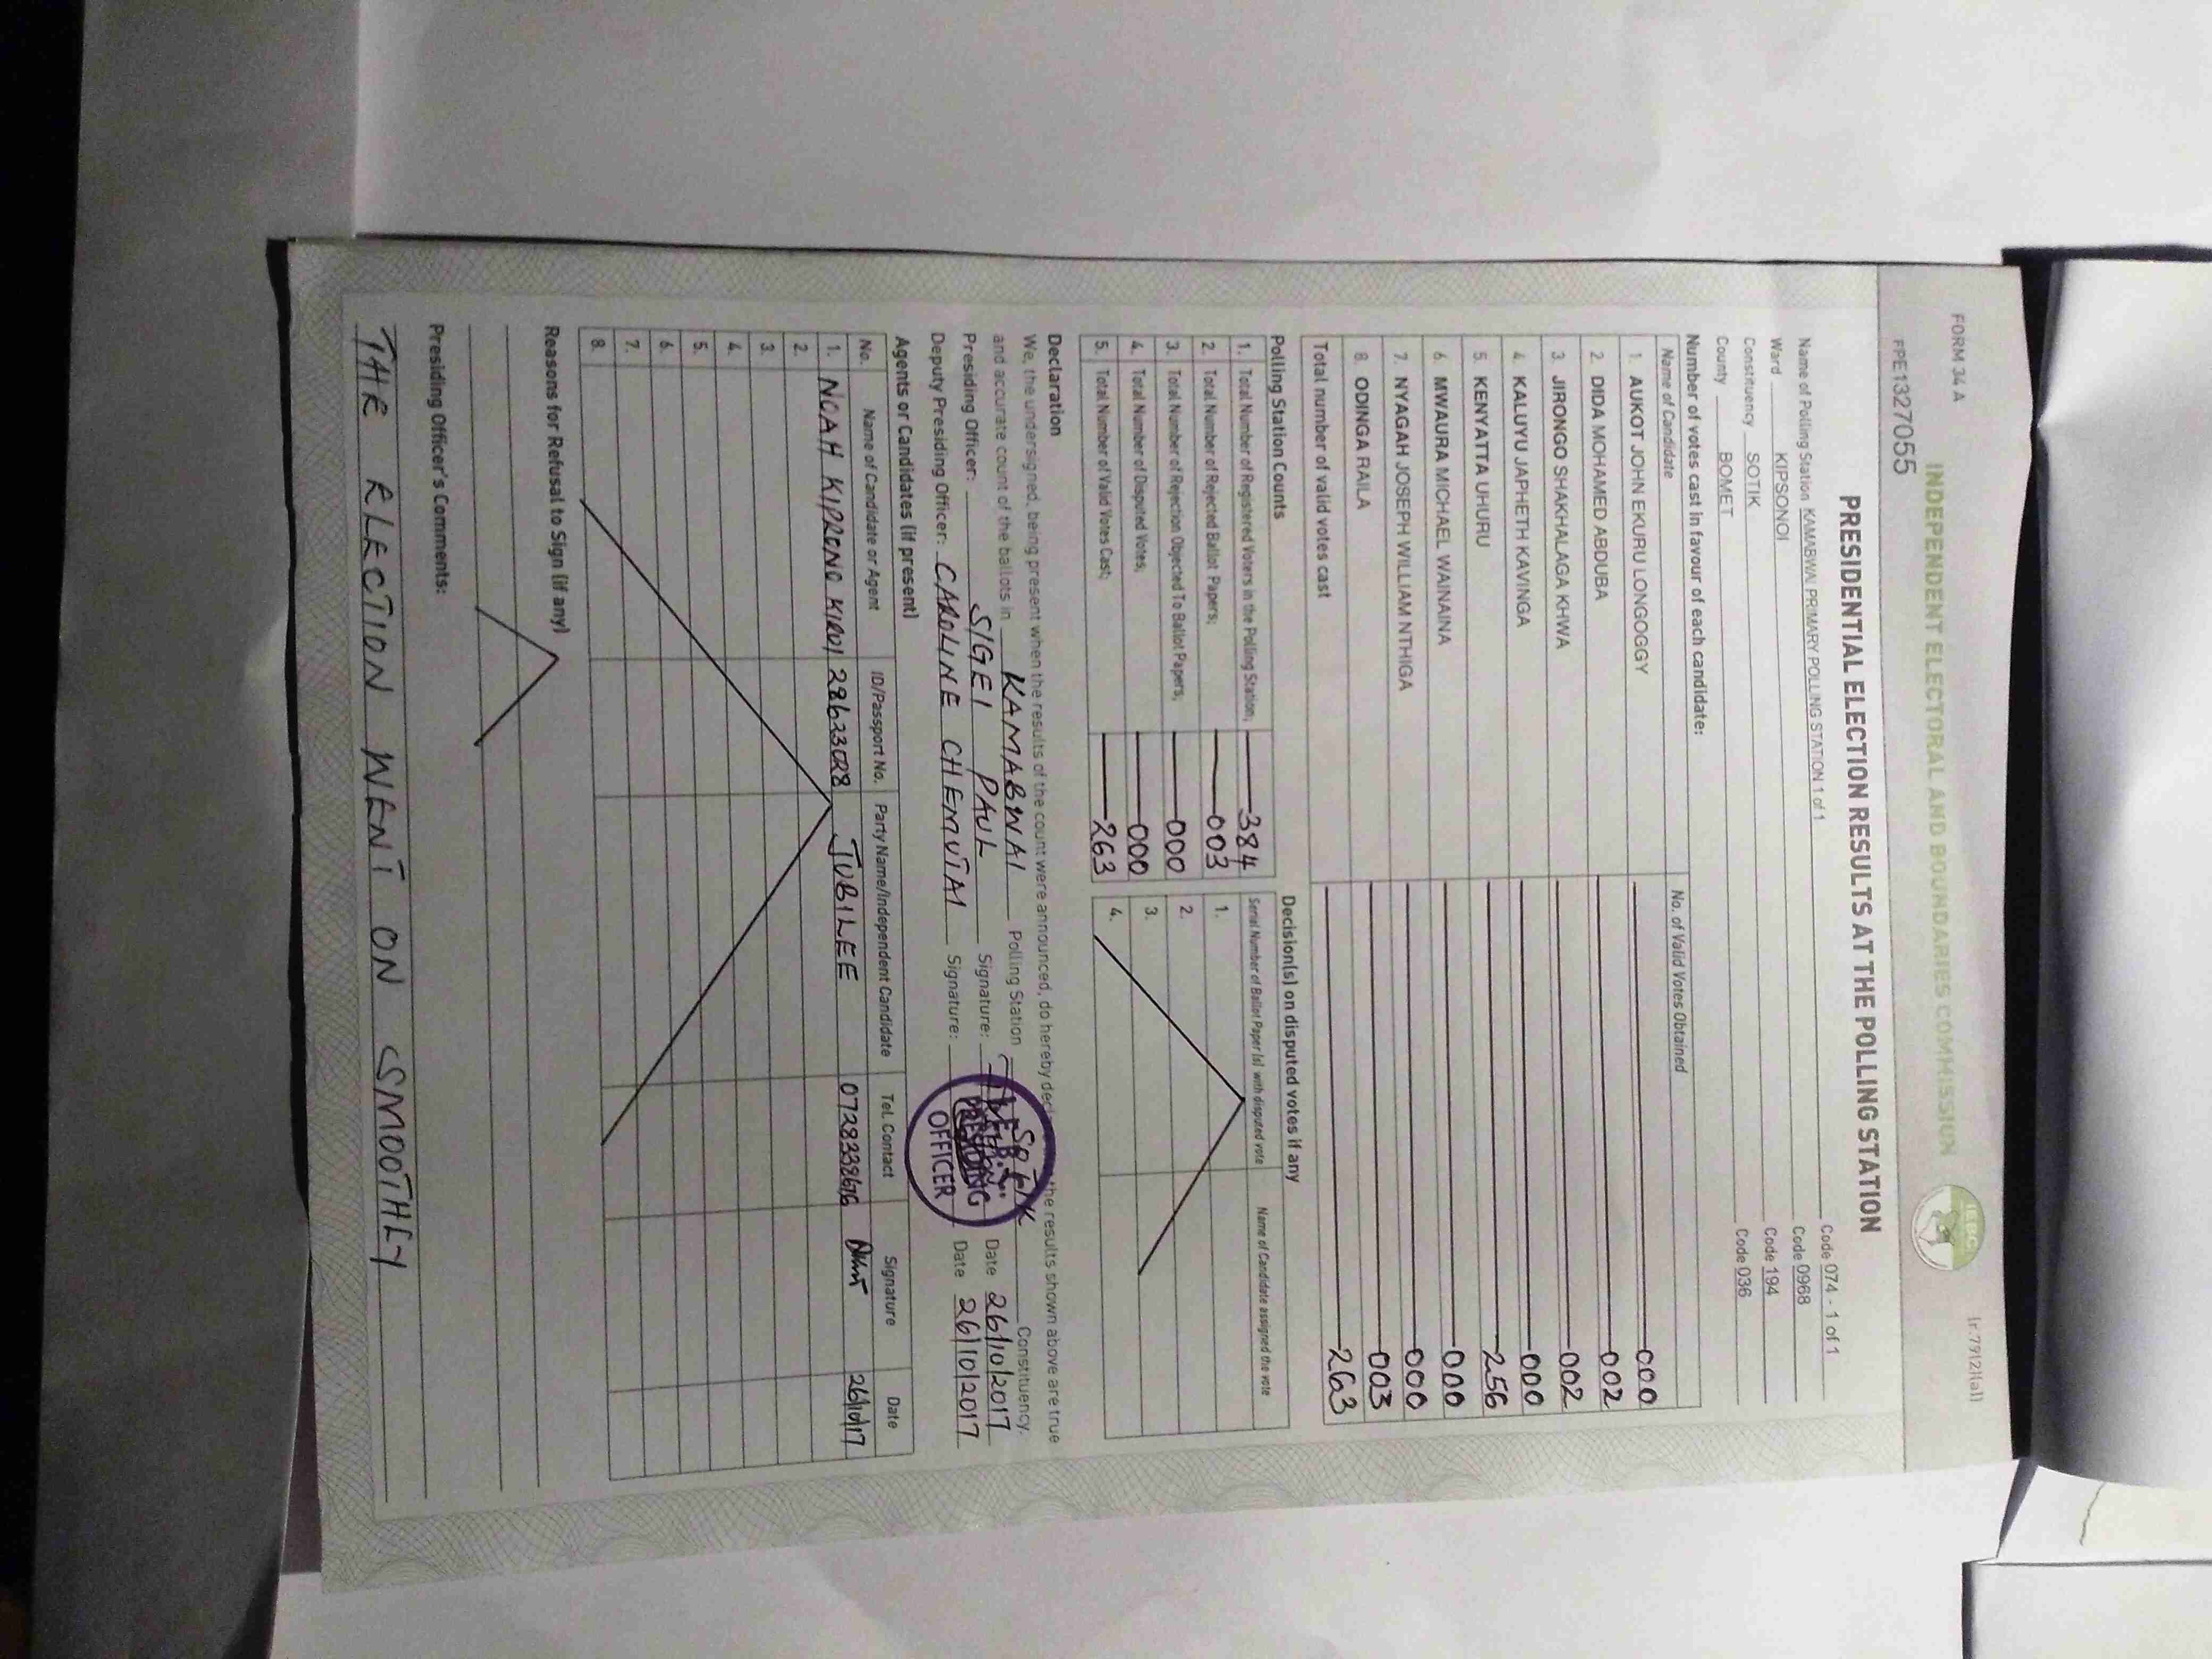 FORM 34 A
(r.79(2)(a))
INDEPENDENT ELECTORAL AND BOUNDARIES COMMISSION
IEBC
FPE1327055
PRESIDENTIAL ELECTION RESULTS AT THE POLLING STATION
Name of Polling Station KAMABWAI PRIMARY POLLING STATION 1 of 1 Code 074 - 1 of 1
Ward KIPSONOI Code 0968
Constituency SOTIK Code 194
County BOMET Code 036
Number of votes cast in favour of each candidate:
Name of Candidate No. of Valid Votes Obtained
1. AUKOT JOHN EKURU LONGOGGY 000
2. DIDA MOHAMED ABDUBA 002
3. JIRONGO SHAKHALAGA KHWA 002
4. KALUYU JAPHETH KAVINGA 000
5. KENYATTA UHURU 256
6. MWAURA MICHAEL WAINAINA 000
7. NYAGAH JOSEPH WILLIAM NTHIGA 000
8. ODINGA RAILA 003
Total number of valid votes cast 263
Polling Station Counts
1. Total Number of Registered Voters in the Polling Station; 384
2. Total Number of Rejected Ballot Papers; 003
3. Total Number of Rejection Objected To Ballot Papers; 000
4. Total Number of Disputed Votes; 000
5. Total Number of Valid Votes Cast; 263
Decision(s) on disputed votes if any
Serial Number of Ballot Paper (s) with disputed vote Name of Candidate assigned the vote
1.
2.
3.
4.
Declaration
We, the undersigned, being present when the results of the count were announced, do hereby the results shown above are true
and accurate count of the ballots in KAMABWAI Polling Station SOTIK Constituency.
Presiding Officer: SIGEI PAUL Signature: Date 26/10/2017
Deputy Presiding Officer: CAROLINE CHEMUTAI Signature: Date 26/10/2017
PRESIDING
OFFICER
Agents or Candidates (if present)
No. Name of Candidate or Agent ID/Passport No. Party Name/Independent Candidate Tel. Contact Signature Date
1. NOAH KIPRONO 28623028 JUBILEE 26/10/17
2.
3.
4.
5.
6.
7.
8.
Reasons for Refusal to Sign (if any)
Presiding Officer's Comments:
THE ELECTION WENT ON SMOOTHLY